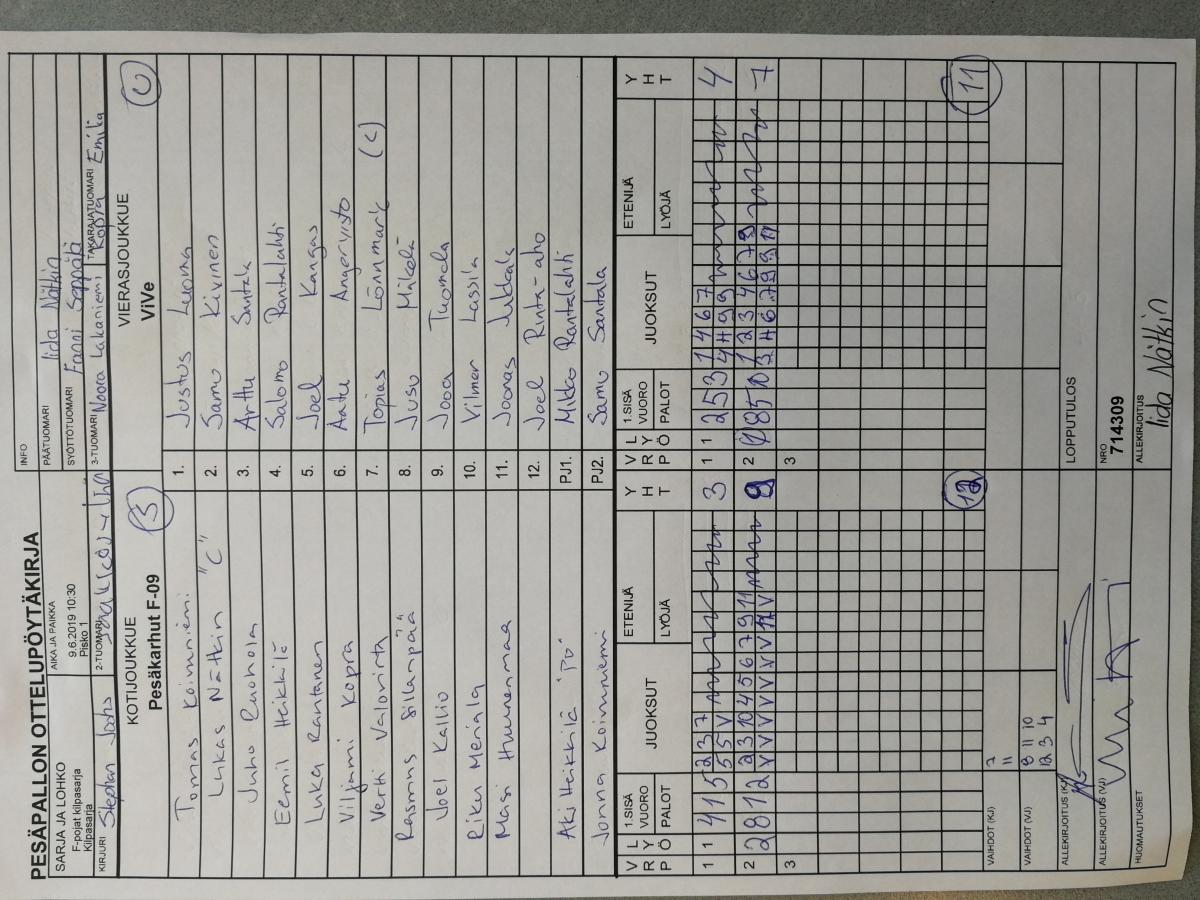 PESÄPALLON OTTELUPÖYTÄKIRJA
SARJA JA LOHKO
F-pojat kilpasarja
Kilpasarja
AIKA JA PAIKKA
9.6.2019 10:30
Pisko 1
INFO
PÄÄTUOMARI Iida Nätkin
SYÖTTÖTUOMARI Fanni Seppäti
KIRJURI Stephan Joohs
2-TUOMARI
3-TUOMARI Noora Lakaniemi
TAKARAJATUOMARI Kopra Emilia
KOTIJOUKKUE
Pesäkarhut F-09
VIERASJOUKKUE
ViVe
Tomas Koivuniemi 1. Justus Luoma
Lukas Nätkin "C" 2. Samu Kivinen
Juho Ruohola 3. Arttu Santala
Eemil Heikkilä 4. Salomo Rantalahti
Luka Rantanen 5. Joel Kangas
Viljami Kopra 6. Aatu Angervisto
Vertti Valovirta 7. Topias Lönnmark (C)
Rasmus Sillanpää 8. Jusu Mäkelä
Joel Kallio 9. Jooa Tuomela
Riku Meriala 10. Vilmer Lassila
Maisi Huunenmaa 11. Joonas Jukkala
12. Joel Rinta-aho
Aki Heikkilä "PJ" PJ1. Mikko Rantalahti
Jonna Koivuniemi PJ2. Samu Santala
V R P L Y Ö 1.SISÄ VUORO PALOT JUOKSUT ETENIJÄ LYÖJÄ Y H T
V R P L Y Ö 1.SISÄ VUORO PALOT JUOKSUT ETENIJÄ LYÖJÄ Y H T
1 1 4 1 5 2 3 7 3
5 5 V
1 1 2 5 3 1 4 6 7 4
4 11 9 9
2 2 8 12 2 3 10 4 5 6 7 9 11 9
V V V V V V V 12 V
2 8 5 10 1 2 3 4 6 7 9 7
3 11 6 7 9 9 11
3
3
12
11
VAIHDOT (KJ) 7
11
VAIHDOT (VJ) 8 11 10
12 3 4
LOPPUTULOS
ALLEKIRJOITUS (KJ)
ALLEKIRJOITUS (VJ)
NRO
714309
HUOMAUTUKSET
ALLEKIRJOITUS
Iida Nätkin